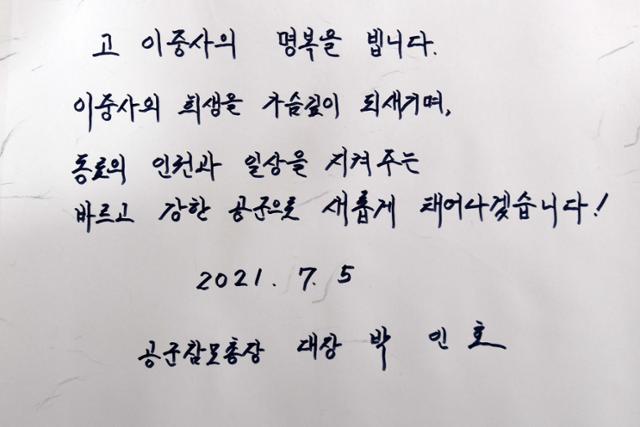 고 이중사의 명복을 빕니다.
이중사의 희생을 가슴깊이 되새기며,
동료의 인권과 일상을 지켜주는
바르고 강한 공군으로 새롭게 태어나겠습니다!
2021. 7. 5
공군참모총장 대장 박 인 호